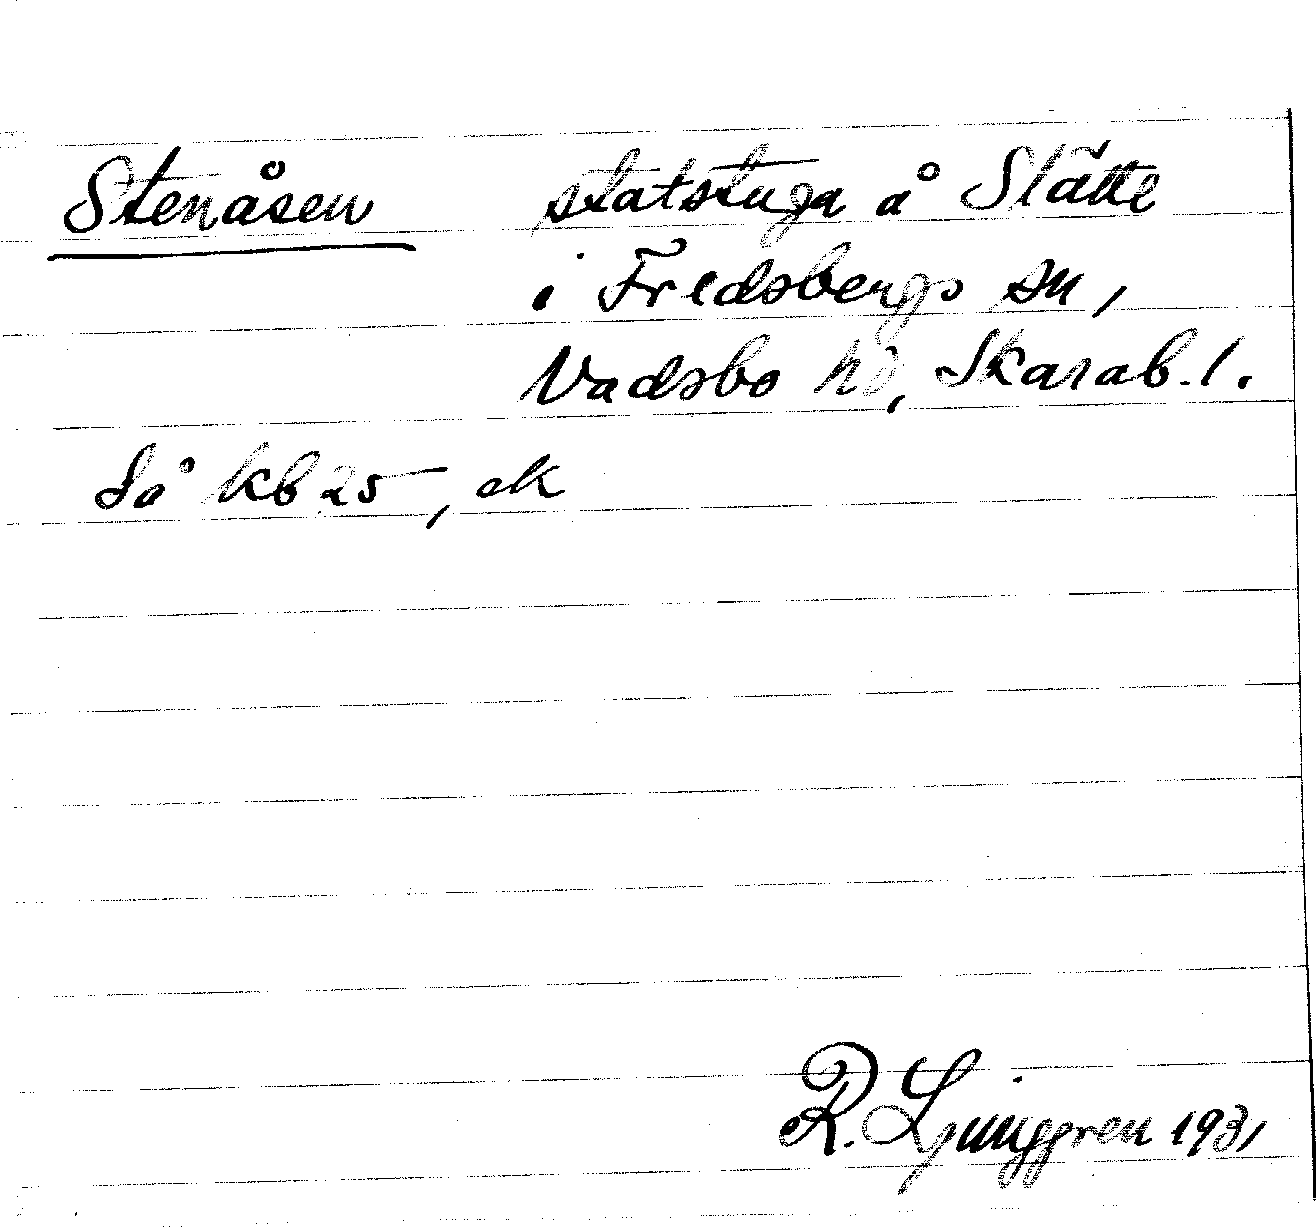 Stenåsen statstuga å Slätte
i Fredsbergs sn,
Vadsbo hd, Skarab. l.
Så kb 25, ek
R. Ljunggren 1931